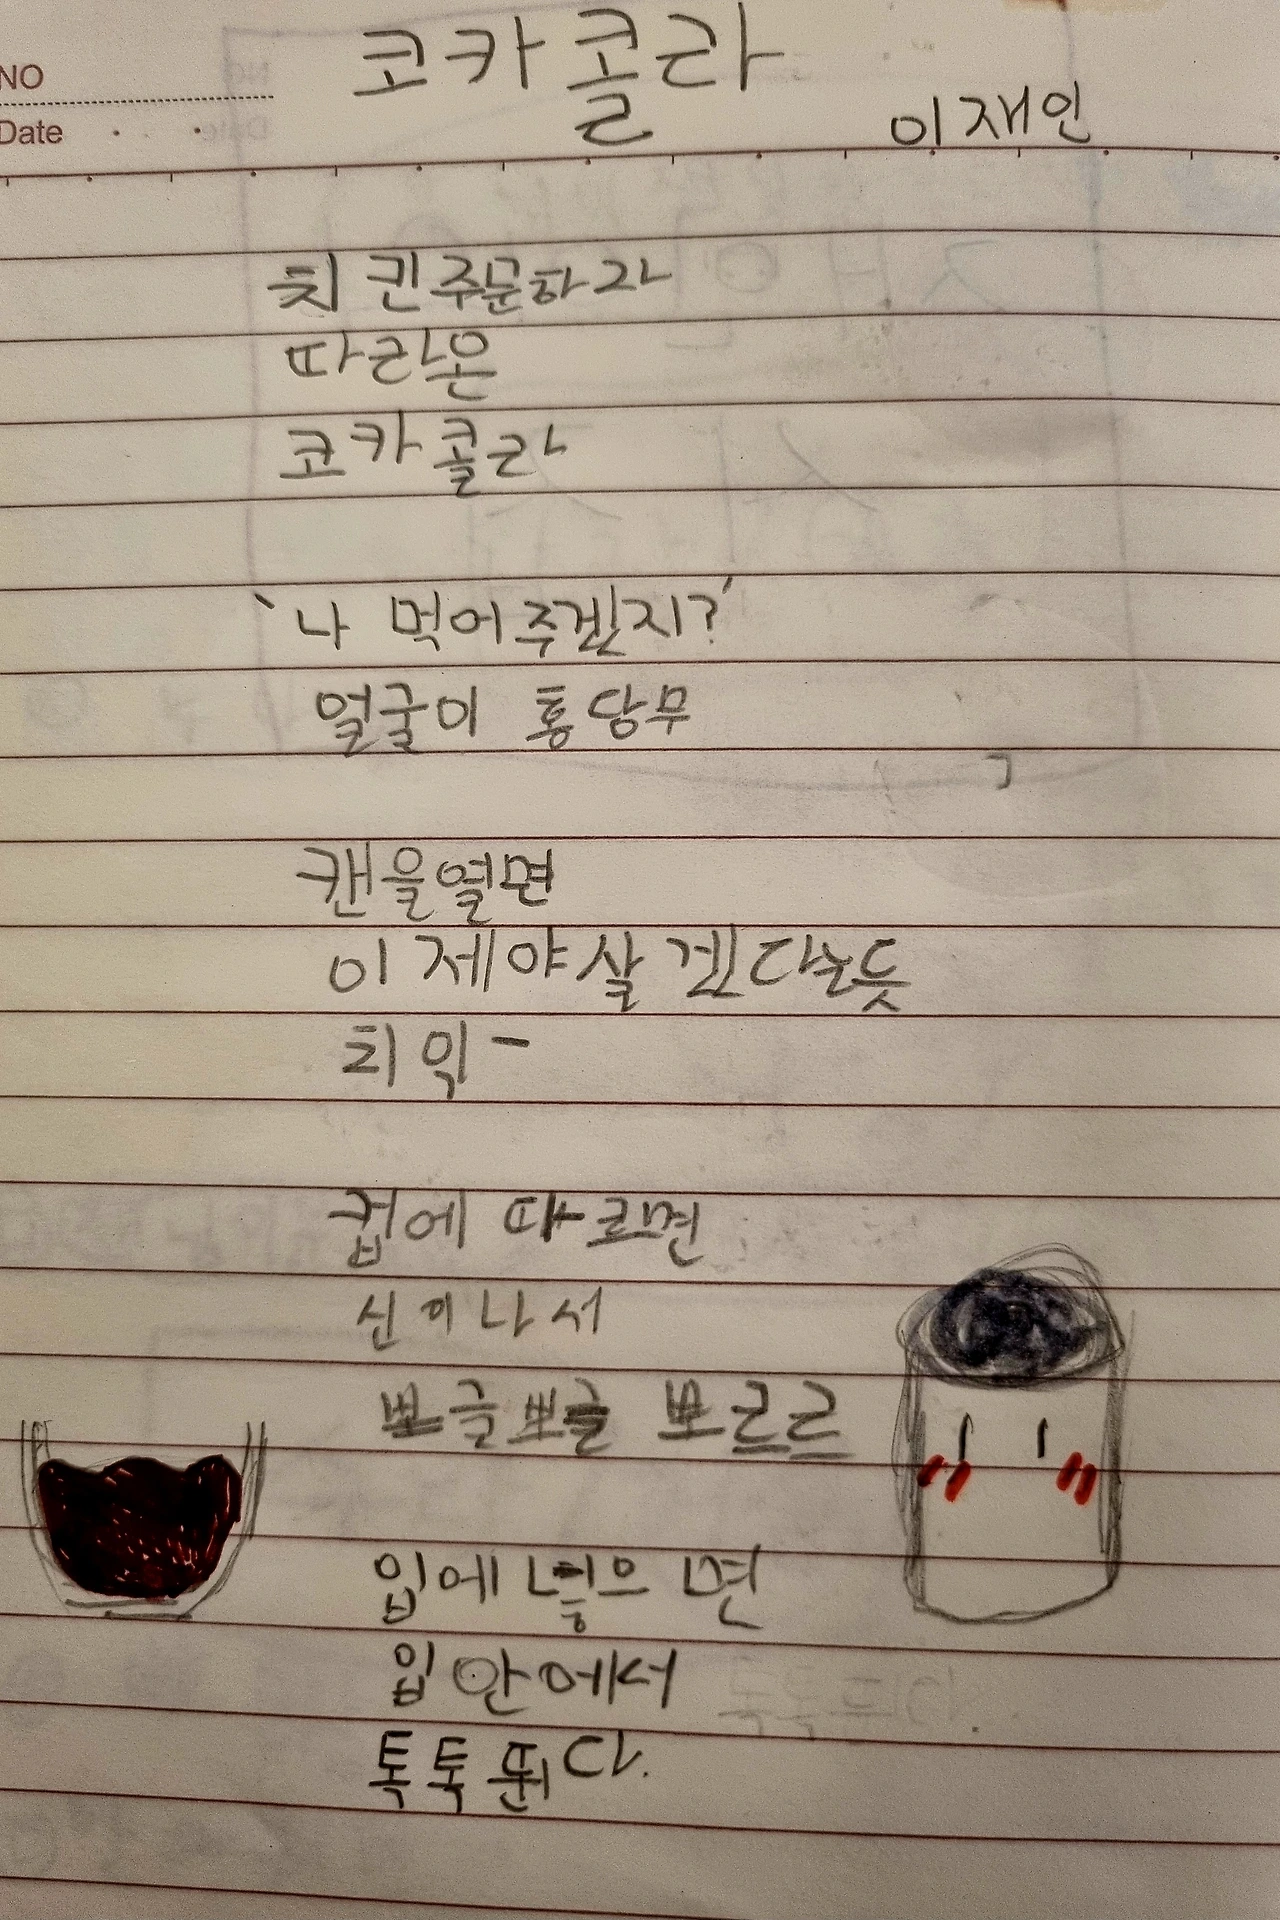 NO
코카콜라
Date
이재인
치킨주문하자
따라온
코카콜라
'나 먹어주겠지?'
얼굴이 홍당무
캔을열면
이제야살겠다는듯
치익-
컵에 따르면
신이나서
뽀글뽀글 뽀르르
입에 넣으면
입안에서
톡톡뛴다.